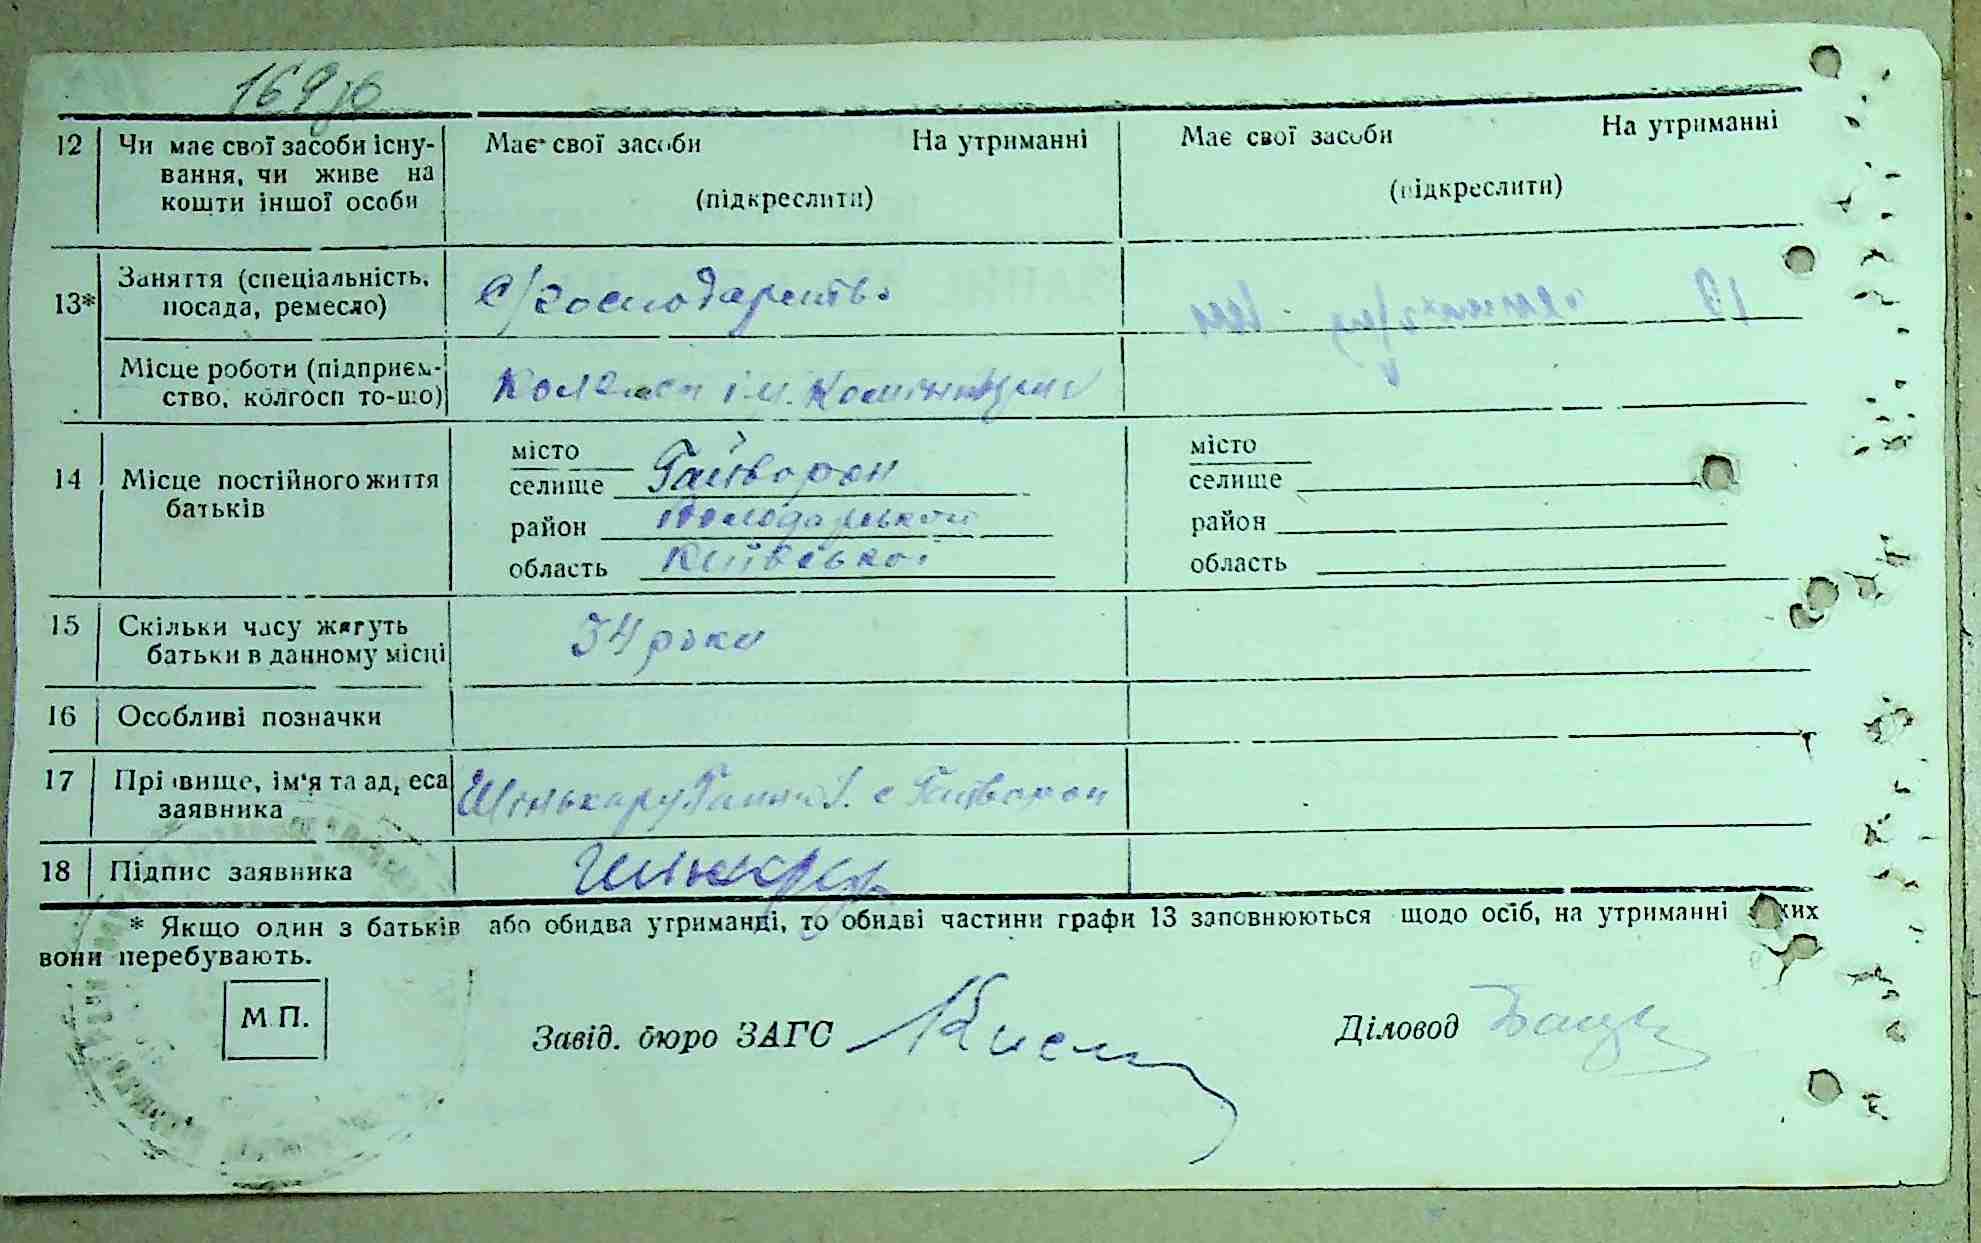 169 зв
12 Чи має свої засоби існу- Має свої засоби На утриманні Має свої засоби На утриманні
вання, чи живе на
кошти іншої особи (підкреслити) (підкреслити)
Заняття (спеціальність, С/господарство
13* посада, ремесло)
Місце роботи (підприєм- Колгосп ім. Комінтерну
ство, колгосп то-що)
місто місто
14 Місце постійного життя селище Гайворон селище
батьків район Володарський район
область Київської область
15 Скільки часу жигуть 34 роки
батьки в данному місці
16 Особливі позначки
17 Прізвище, ім'я та адреса Шінькару Ганна с Гайворон
заявника
18 Підпис заявника Шінкару
* Якщо один з батьків або обидва утриманді, то обидві частини графи 13 заповнюються щодо осіб, на утриманні яких
вони перебувають.
М.П.
Завід. бюро ЗАГС Діловод